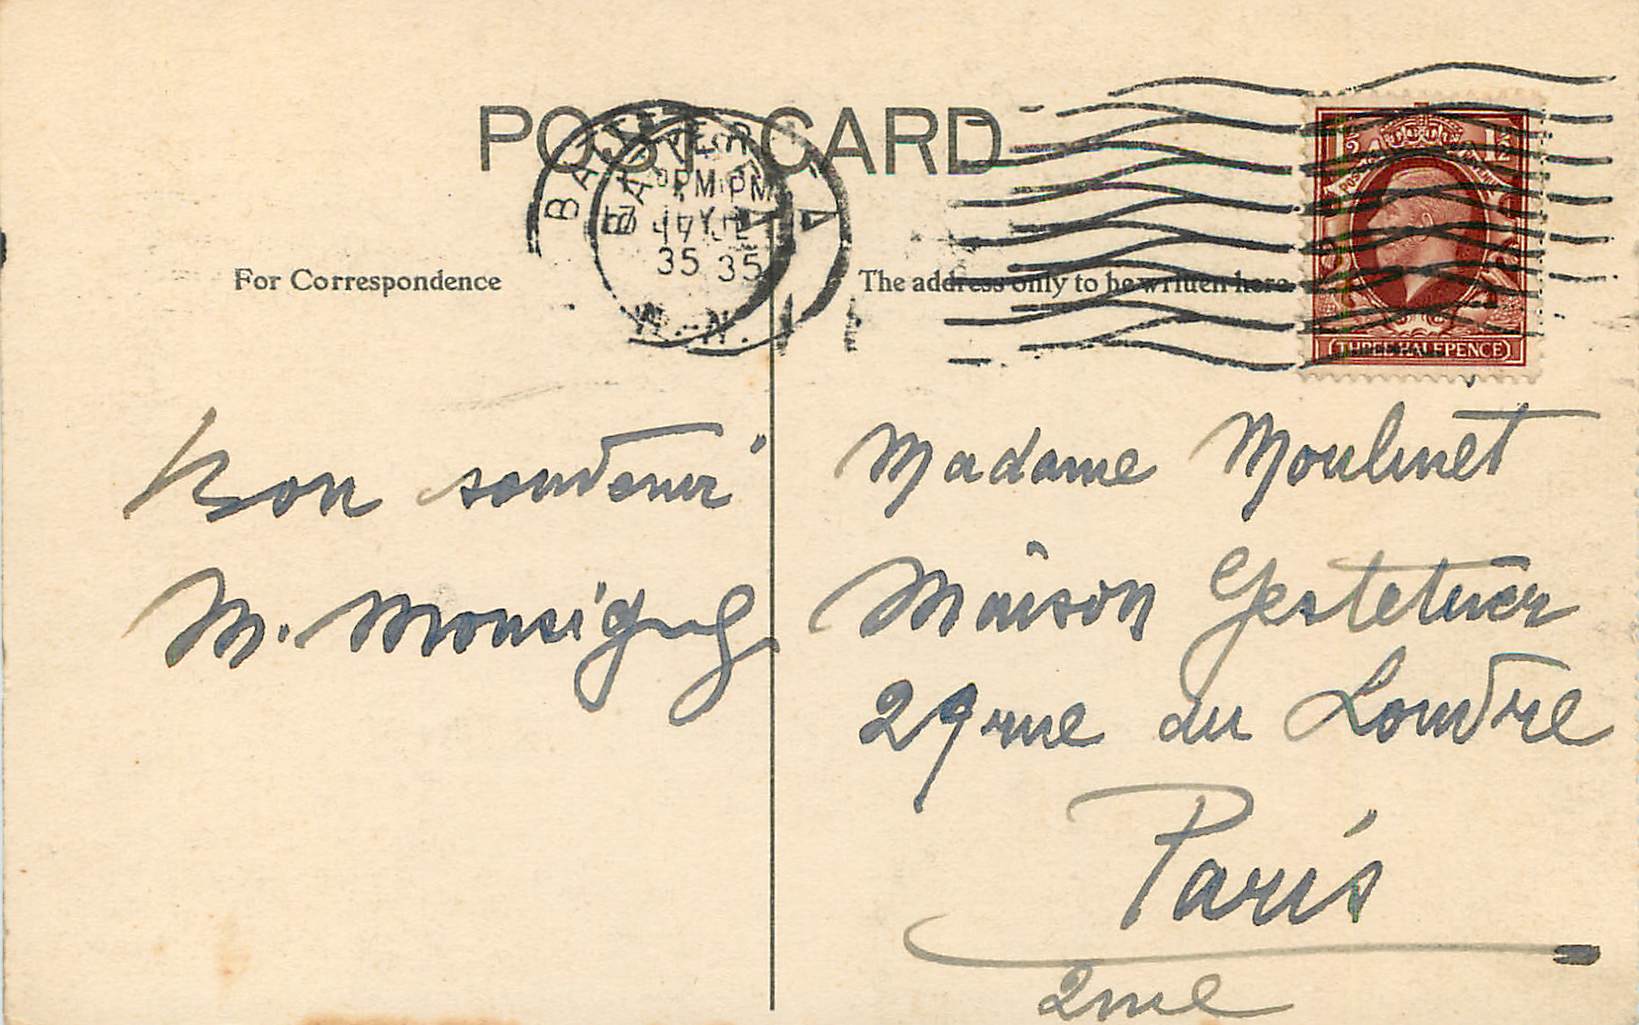 POST CARD
BATTERSEA
BATTERSEA
PM PM
35 35
For Correspondence
The address only to be written here
POSTAGE REVENUE
1½ 1½
THREE HALFPENCE
Bon souvenir
M. Monsigny
Madame Moulinet
Maison Gestetner
29 rue du Louvre
Paris
2me